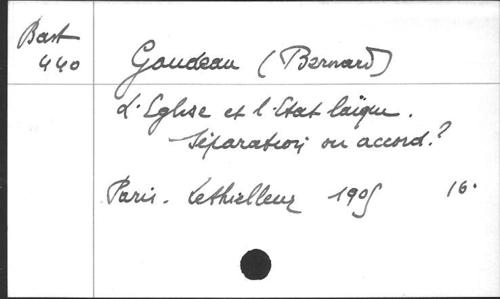 Bast
440
Gaudeau (Bernard)
L'Eglise et l'Etat laïque.
Séparation ou accord?
Paris. Lethielleux 1905 16.